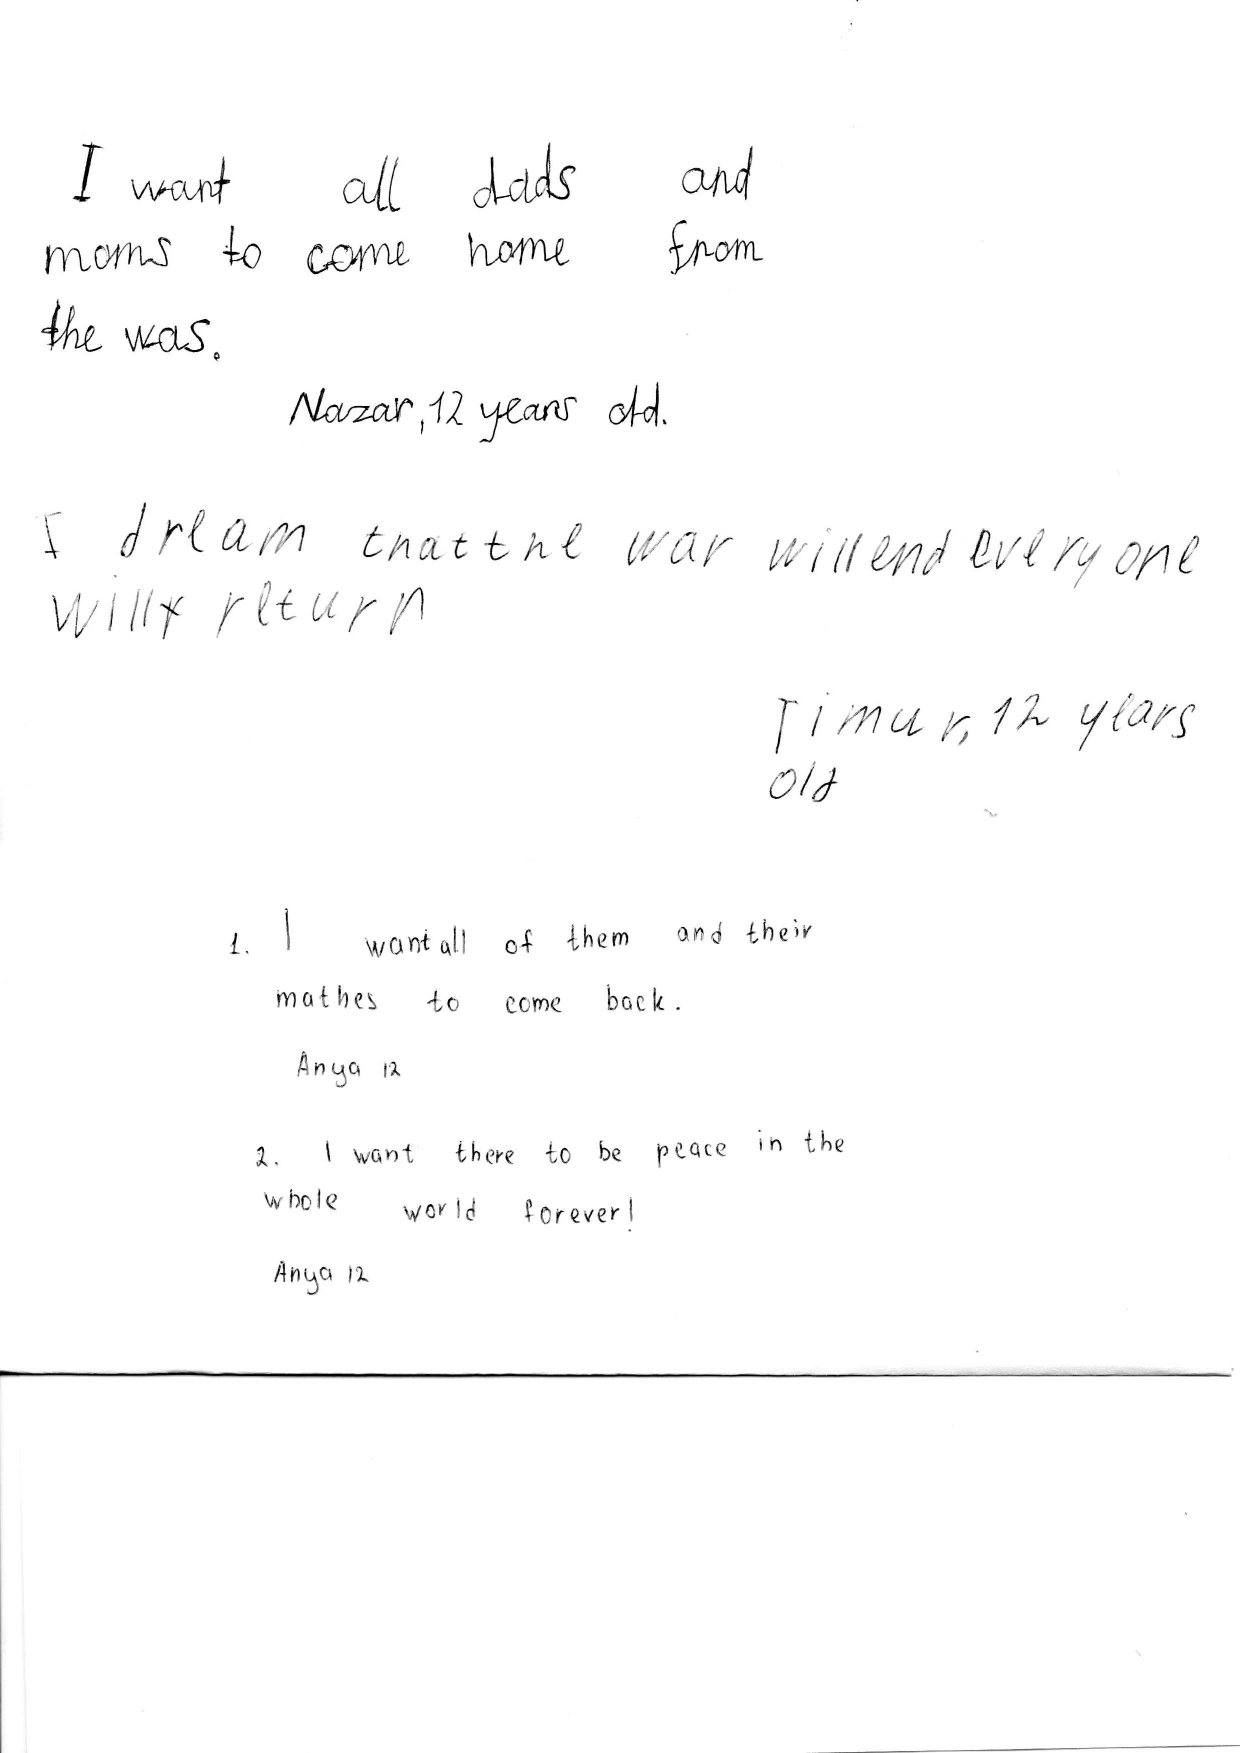 I want all dads and
moms to come home from
the was.
Nazar, 12 years old.
I dream that the war will end every one
will return
Timur, 12 years
old
1. I want all of them and their
mathes to come back.
Anya 12
2. I want there to be peace in the
whole world forever!
Anya 12